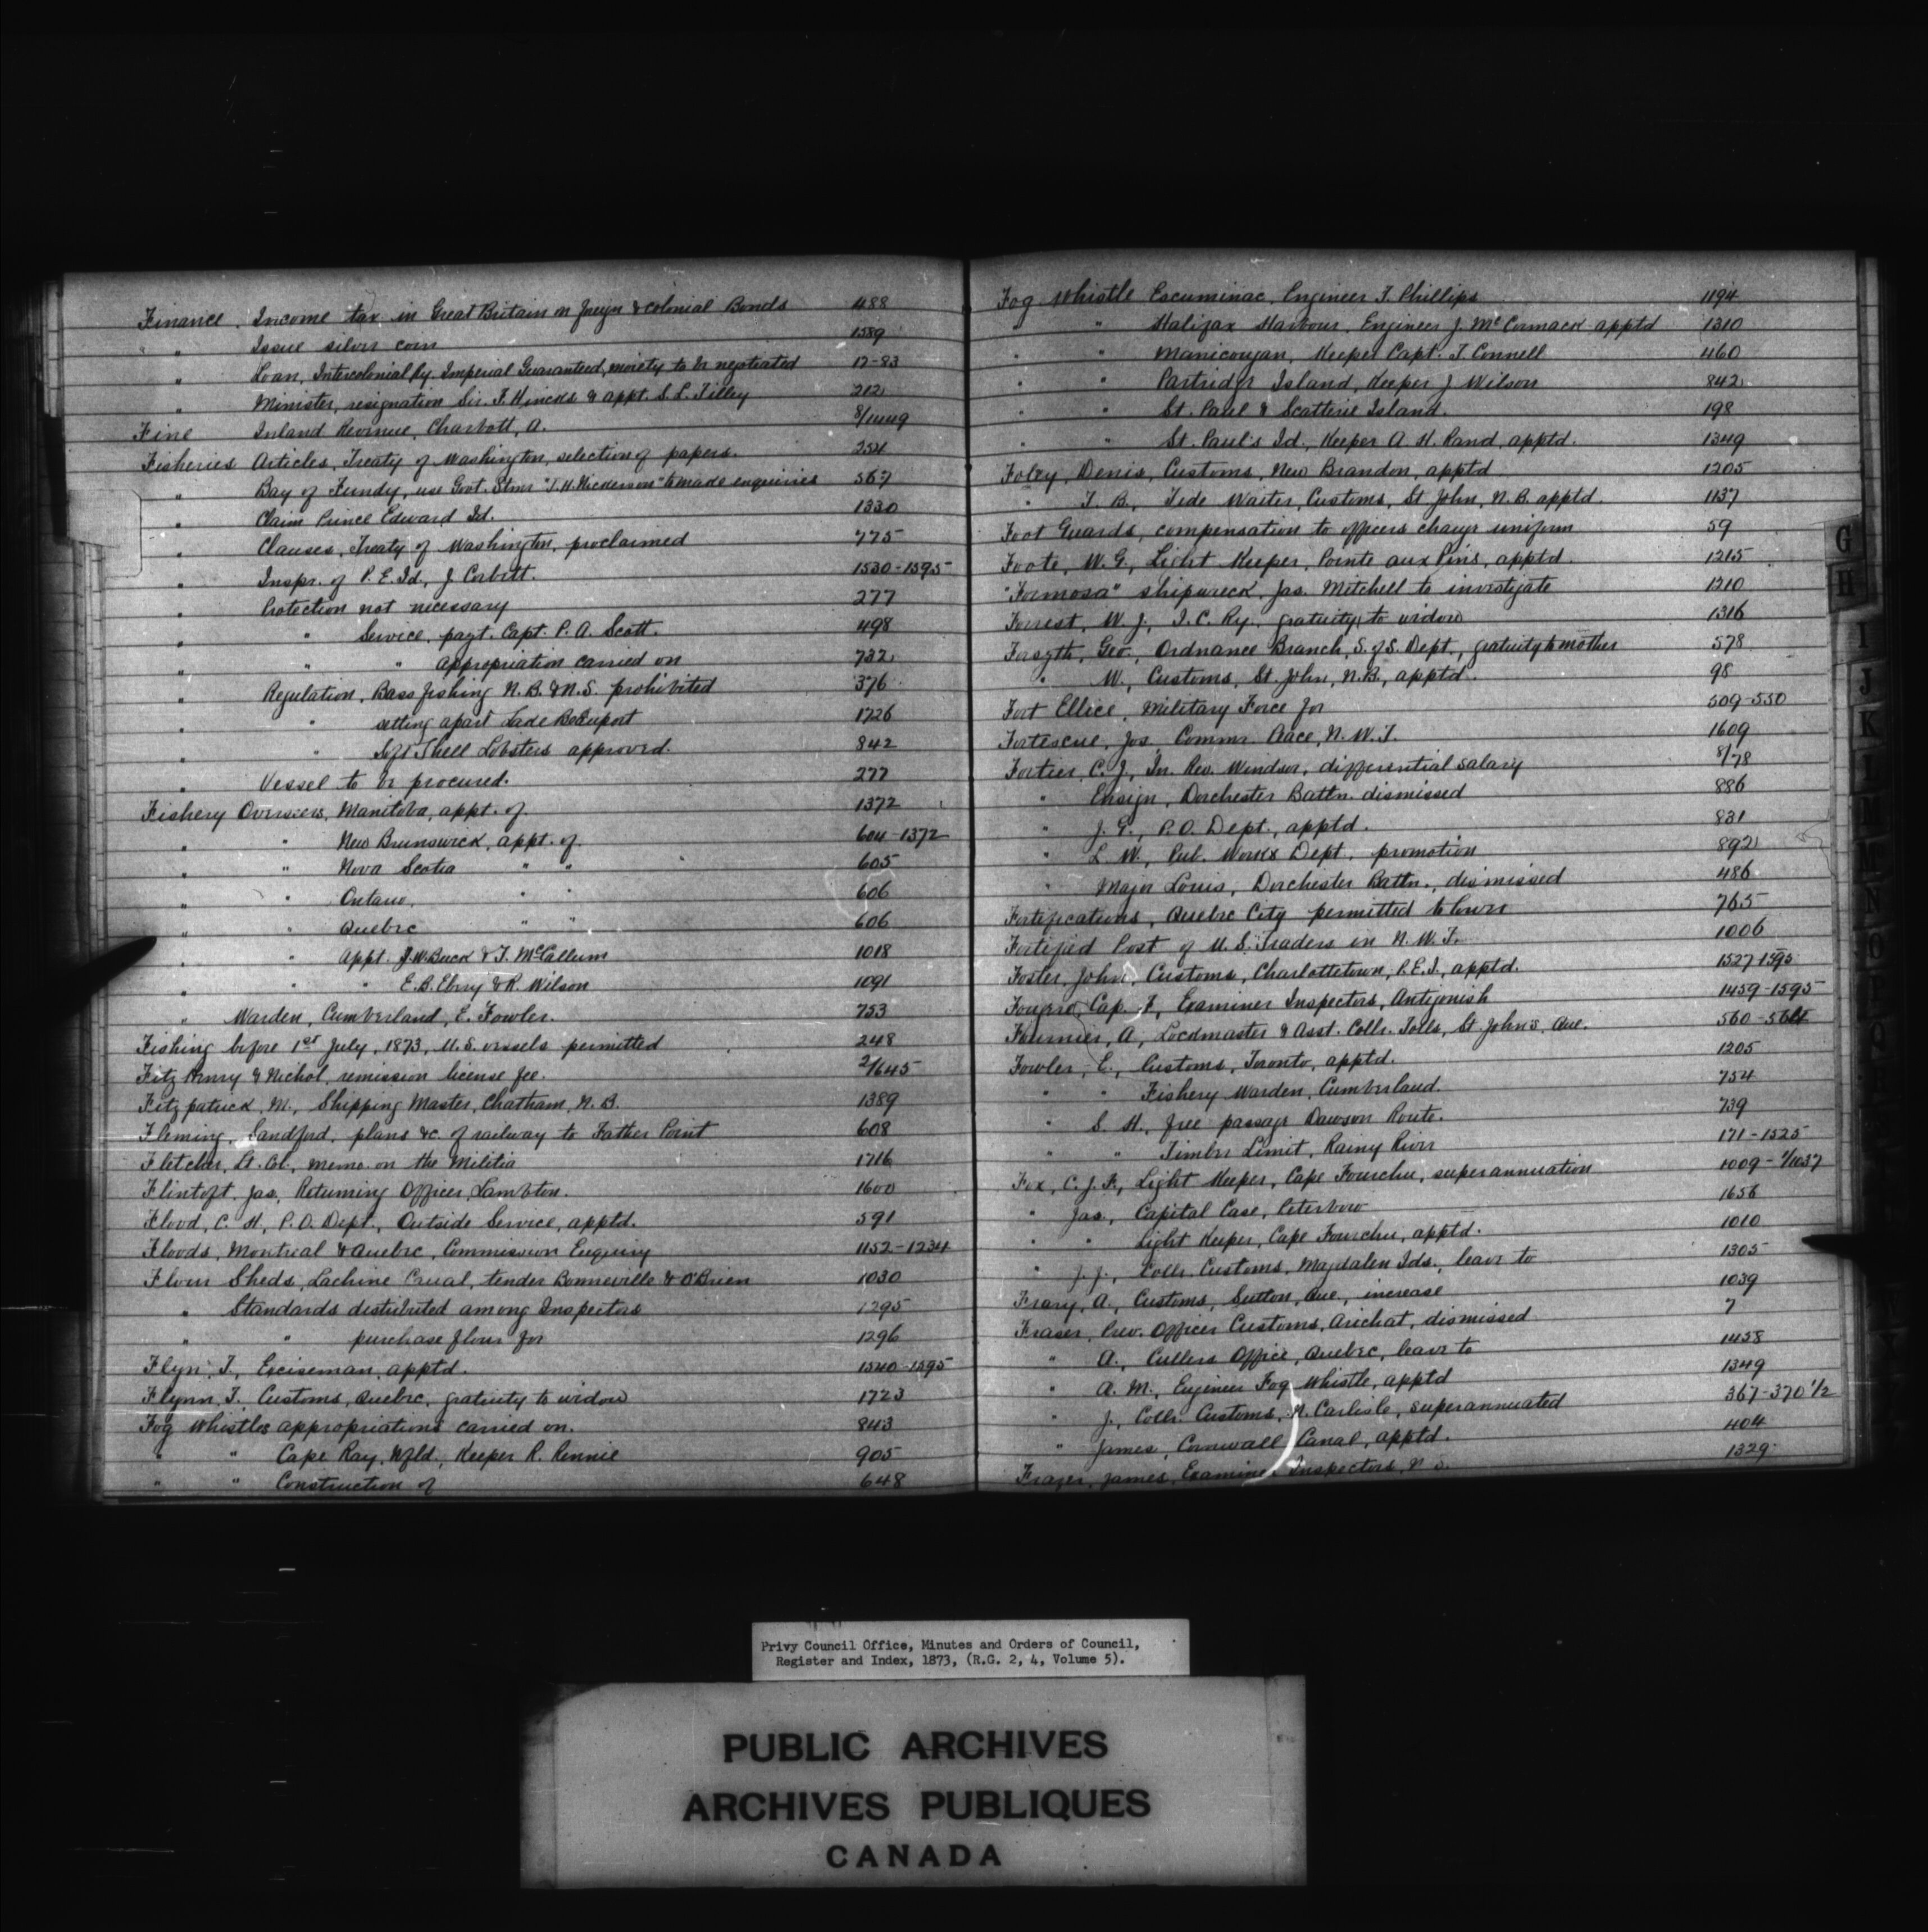 Finance. Income tax in Great Britain on foreign & colonial Bonds 488
" " Issue silver coin 1589
" Loan, Intercolonial Ry. Imperial Guaranteed, moiety to be negotiated 17-83
" Minister, resignation Sir F. Hincks & appt. S. L. Tilley 212
Fine Inland Revenue, Charbott, A. 8/1449
Fisheries Articles, Treaty of Washington, selection of papers. 254
" Bay of Fundy, use Govt. Stmr "J. H. Nickerson" to make enquiries 567
" Claim Prince Edward Id. 1330
" Clauses, Treaty of Washington, proclaimed 775
" Inspr. of P. E. Id., J. Corbitt. 1530-1595
" Protection not necessary 277
" " Service, payt. Capt. P. A. Scott. 498
" " " appropriation carried on 732
" Regulation, Bass fishing N. B. & N. S. prohibited 376
" " setting apart Lake Beauport 1726
" " Soft Shell Lobsters approved. 842
" Vessel to be procured. 277
Fishery Overseers, Manitoba, appt. of. 1372
" " New Brunswick, appt. of. 604-1372
" " Nova Scotia " " 605
" " Ontario, " " 606
" " Quebec " " 606
" " Appt. J. W. Buck & T. McCallum 1018
" " " E. B. Ebry & R. Wilson 1091
" Warden, Cumberland, E. Fowler. 753
Fishing before 1st July, 1873, U. S. vessels permitted 248
Fitz Henry & Nichol, remission license fee. 2/645
Fitzpatrick, M., Shipping Master, Chatham, N. B. 1389
Fleming, Sandford, plans &c. of railway to Father Point 608
Fletcher, Lt. Col., memo. on the Militia 1716
Flintoft, Jas, Returning Officer, Lambton. 1600
Flood, C. H., P. O. Dept., Outside Service, apptd. 591
Floods, Montreal & Quebec, Commission Enquiry 1152-1234
Flour Sheds, Lachine Canal, tender Bonneville & O'Brien 1030
" Standards distributed among Inspectors 1295
" " purchase flour for 1296
Flyn, T., Exciseman, apptd. 1540-1595
Flynn, T., Customs, Quebec, gratuity to widow 1723
Fog Whistles appropriations carried on. 843
" " Cape Ray, Nfld., Keeper R. Rennie 905
" " Construction of 648
Fog Whistle Escuminac, Engineer T. Phillips 1194
" Halifax Harbour, Engineer J. McCormack apptd 1310
" " Manicougan, Keeper Capt. T. Connell 460
" " Partridge Island, Keeper J Wilson 842
" " St. Paul & Scatterie Island. 198
" " St. Paul's Id., Keeper A. H. Rand, apptd. 1349
Foley, Denis, Customs, New Brandon, apptd 1205
" T. B., Tide Waiter, Customs, St John, N. B. apptd. 1137
Foot Guards, compensation to officers change uniform 59
Foote, W. G., Light Keeper, Pointe aux Pins, apptd. 1215
"Formosa" shipwreck, Jas. Mitchell to investigate 1210
Forrest, W. J., I. C. Ry. gratuity to widow 1316
Forsyth, Geo., Ordnance Branch, S. of S. Dept., gratuity to mother 578
" W., Customs, St. John, N. B., apptd. 98
Fort Ellice, Military Force for 509-550
Fortescue, Jos. Commr. Peace, N. W. T. 1609
Fortier C. J., In. Rev. Windsor, differential salary 8/78
" Ensign, Dorchester Battn. dismissed 886
" J. G., P. O. Dept., apptd. 831
" L. W., Pub. Works Dept. promotion 892
" Major Louis, Dorchester Battn., dismissed 486
Fortifications, Quebec City permitted to lower 765
Fortified Post of U. S. Traders in N. W. T. 1006
Foster, John, Customs, Charlottetown, P. E. I., apptd. 1527-1595
Cap. F., Examiner Inspectors, Antigonish 1459-1595
Fournier, A., Lockmaster & Asst. Collr. Tolls, St. John's, Que. 560-564
Fowler, E., Customs, Toronto, apptd. 1205
" " Fishery Warden, Cumberland. 754
" S. H., free passage Dawson Route. 739
" " Timber Limit, Rainy River 171-1525
Fox, C. J. F., Light Keeper, Cape Fourchu, superannuation 1009-1/1037
" Jas., Capital Case, Peterboro 1656
" " Light Keeper, Cape Fourchu, apptd. 1010
" J. J., Collr. Customs, Magdalen Ids., leave to 1305
Frary, A., Customs, Sutton, Que., increase 1039
Fraser, Prev. Officer Customs, Arichat, dismissed 7
" A., Cullers Office, Quebec, leave to 1458
" A. M., Engineer Fog Whistle, apptd 1349
" J., Collr. Customs, N. Carlisle, superannuated 367-370 1/2
" James, Cornwall Canal, apptd. 404
Frazer, James, Examiner Inspectors, N. S. 1329
G
H
I
J
K
L
M
N
O
Privy Council Office, Minutes and Orders of Council,
Register and Index, 1873, (R.G. 2, 4, Volume 5).
PUBLIC ARCHIVES
ARCHIVES PUBLIQUES
CANADA